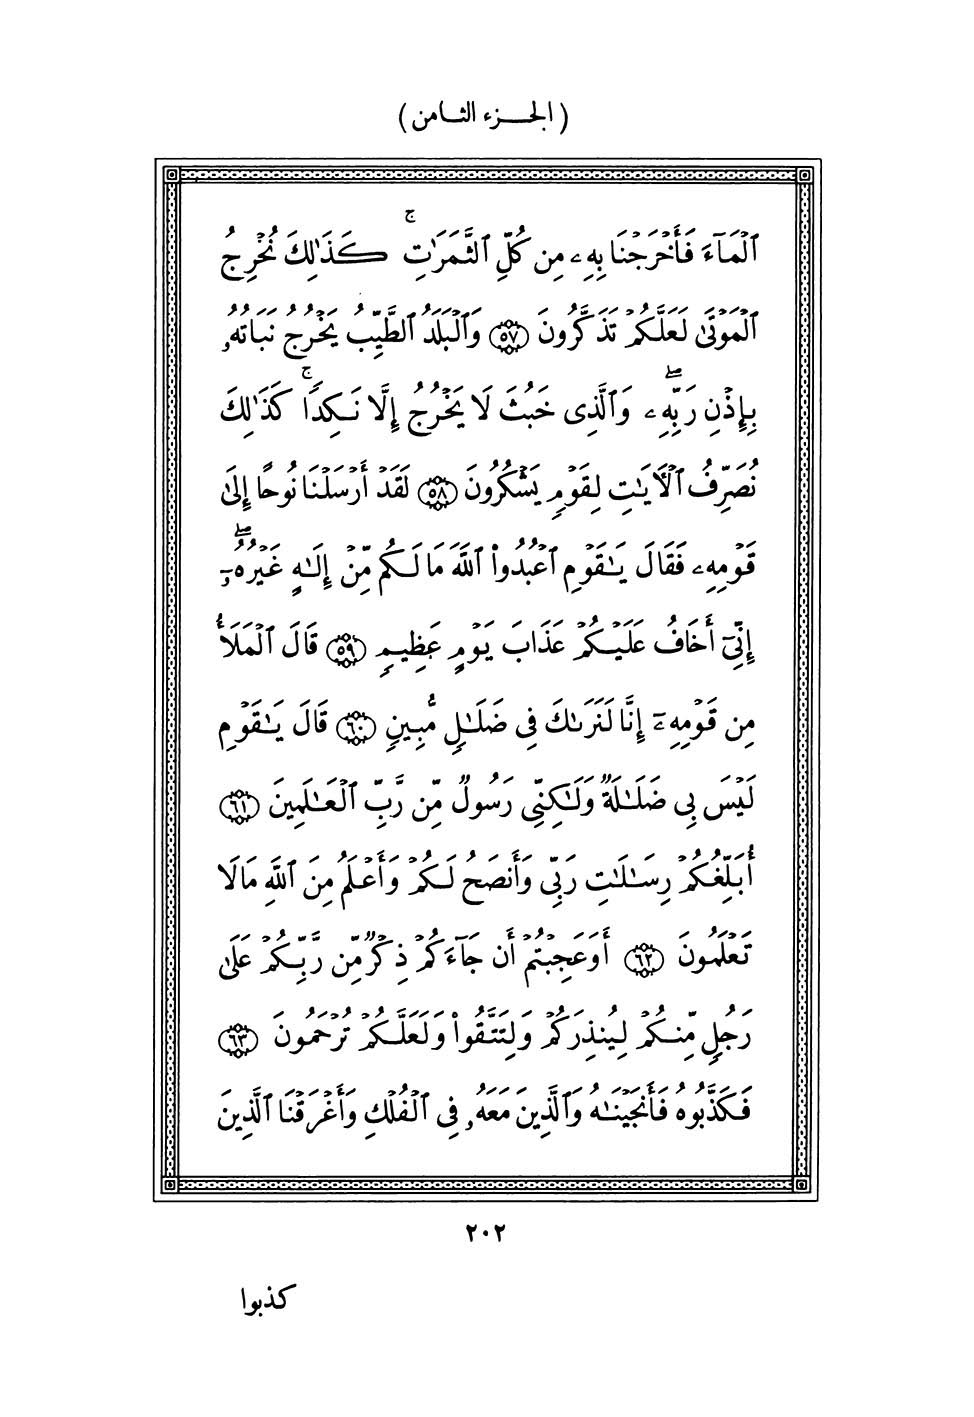 (الجزء الثامن)
ٱلْمَآءَ فَأَخْرَجْنَا بِهِۦ مِن كُلِّ ٱلثَّمَرَٰتِ ۚ كَذَٰلِكَ نُخْرِجُ
ٱلْمَوْتَىٰ لَعَلَّكُمْ تَذَكَّرُونَ ٥٧ وَٱلْبَلَدُ ٱلطَّيِّبُ يَخْرُجُ نَبَاتُهُۥ
بِإِذْنِ رَبِّهِۦ ۖ وَٱلَّذِى خَبُثَ لَا يَخْرُجُ إِلَّا نَكِدًا ۚ كَذَٰلِكَ
نُصَرِّفُ ٱلْأَيَٰتِ لِقَوْمٍ يَشْكُرُونَ ٥٨ لَقَدْ أَرْسَلْنَا نُوحًا إِلَىٰ
قَوْمِهِۦ فَقَالَ يَٰقَوْمِ ٱعْبُدُوا۟ ٱللَّهَ مَا لَكُم مِّنْ إِلَٰهٍ غَيْرُهُۥٓ ۖ
إِنِّىٓ أَخَافُ عَلَيْكُمْ عَذَابَ يَوْمٍ عَظِيمٍ ٥٩ قَالَ ٱلْمَلَأُ
مِن قَوْمِهِۦٓ إِنَّا لَنَرَىٰكَ فِى ضَلَٰلٍ مُّبِينٍ ٦٠ قَالَ يَٰقَوْمِ
لَيْسَ بِى ضَلَٰلَةٌ وَلَٰكِنِّى رَسُولٌ مِّن رَّبِّ ٱلْعَٰلَمِينَ ٦١
أُبَلِّغُكُمْ رِسَٰلَٰتِ رَبِّى وَأَنصَحُ لَكُمْ وَأَعْلَمُ مِنَ ٱللَّهِ مَا لَا
تَعْلَمُونَ ٦٢ أَوَعَجِبْتُمْ أَن جَآءَكُمْ ذِكْرٌ مِّن رَّبِّكُمْ عَلَىٰ
رَجُلٍ مِّنكُمْ لِيُنذِرَكُمْ وَلِتَتَّقُوا۟ وَلَعَلَّكُمْ تُرْحَمُونَ ٦٣
فَكَذَّبُوهُ فَأَنجَيْنَٰهُ وَٱلَّذِينَ مَعَهُۥ فِى ٱلْفُلْكِ وَأَغْرَقْنَا ٱلَّذِينَ
٢٠٢
كذبوا